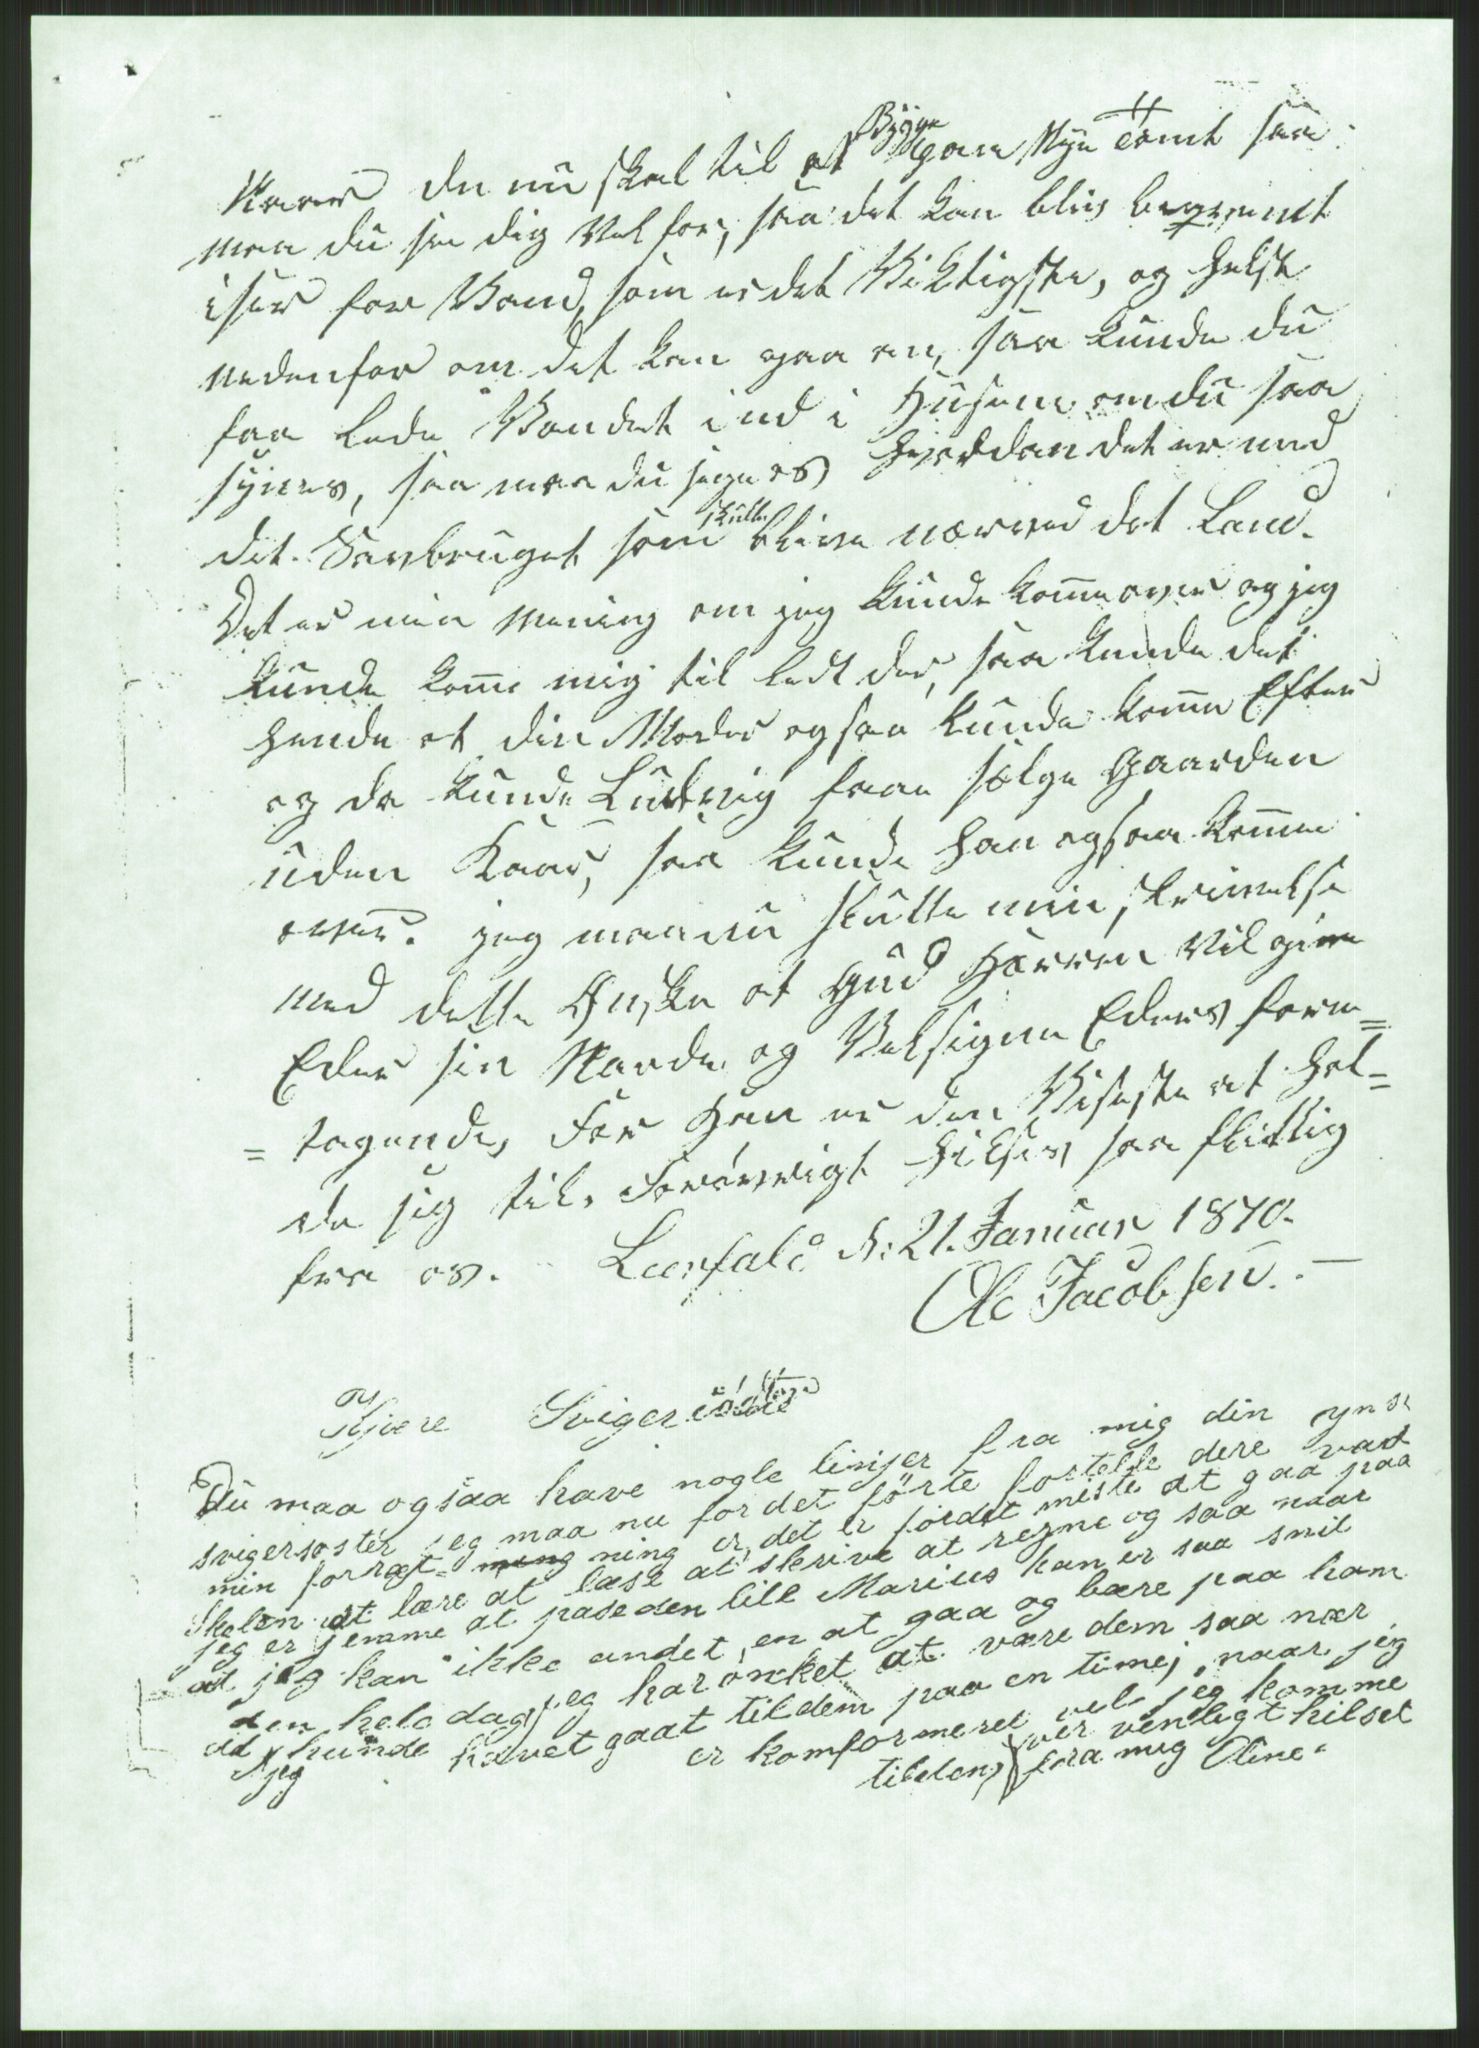 Naar du nu skal til at Bygge paa Nye Tomt saa
maa du se dig Vel for, saa det kan bliv beqvemt
iser for Vand, som er det Viktigste, og helst
nedenfor om det kan gaa an, saa kunde du
faa lede Vandet ind i Husene om du saa
synes, saa maa du sige os hvordan det er med
det Savbruget som skulle blive nærved det Land.
Det er min Mening om jeg kunde komme over og jeg
kunde komme mig til ledt der, saa kunde det
hende at din Moder ogsaa kunde komme Efter
og da kunde Ludevig faae sælge Gaarden
uden Kaar, saa kunde han ogsaa komme
over. jeg maa nu slutte min skrivelse
med dette Ønske at Gud Herren Vil give
Eder sin Naade og Velsigne Eders fore=
=tagende, For Han er den Viseste at hol=
de sig til. Forøvrigt hilses saa flittig
fra os. Leerfald d: 21. Januar 1870.
Ole Jacobsen.
Kjære Sviger
Du maa ogsaa have nogle linjer fra mig din yngste
svigersøster jeg maa nu for det førte fortelle dere vad
min forræt-ning er, det er fördet miste at gaa paa
Skolen at lære at læse at skrive at regne og saa naar
jeg er jemme at pase den lill Marius han er saa snil
at jeg kan ikke andet, en at gaa og bære paa ham
den hele dag, jeg har önket at være dem saa nær
at jeg kunde havet gaat til dem paa en time, naar jeg
er komformeret vel jeg komme
tildem, ver venligt hilset
fra mig Oline.